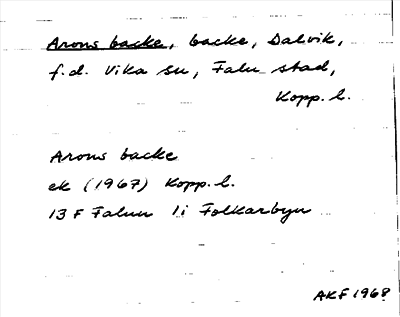 Arons backe, backe, Dalvik,
f.d. Vika sn, Falu stad,
Kopp. l.
Arons backe
ek (1967) Kopp. l.
13 F Falun 1i Folkarbyn
AKF 1968